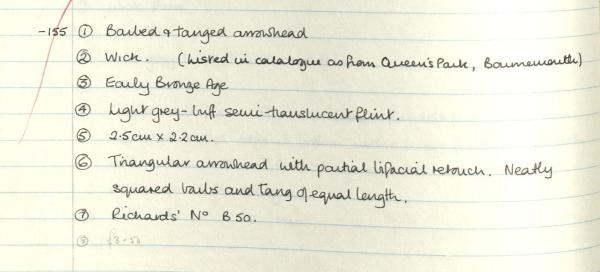 -155 ① Barbed & tanged arrowhead
② Wick. (Listed in catalogue as from Queen's Park, Bournemouth)
③ Early Bronze Age
④ Light grey-buff semi-translucent flint.
⑤ 2.5cm x 2.2cm.
⑥ Triangular arrowhead with partial bifacial retouch. Neatly
squared barbs and tang of equal length.
⑦ Richards' Nº B 50.
⑧ £3-50